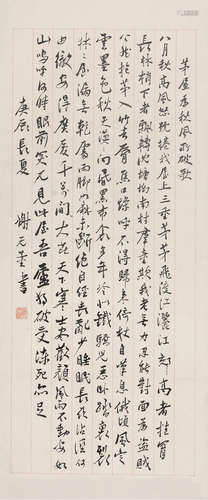 茅屋為秋風所破歌
八月秋高風怒號捲我屋上三重茅茅飛度江灑江郊高者挂罥
長林梢下者飄轉沈塘坳南村羣童欺我老無力忍能對面為盜賊
公然抱茅入竹去脣焦口燥呼不得歸來倚杖自嘆息俄頃風定
雲墨色秋天漠漠向昏黑布衾多年冷似鐵嬌兒惡臥踏裏裂
牀牀屋漏無乾處雨腳如麻未斷絕自經喪亂少睡眠長夜沾濕何
由徹安得廣廈千萬間大庇天下寒士俱歡顏風雨不動安如
山嗚呼何時眼前突兀見此屋吾廬獨破受凍死亦足
庚辰長夏 謝无量書